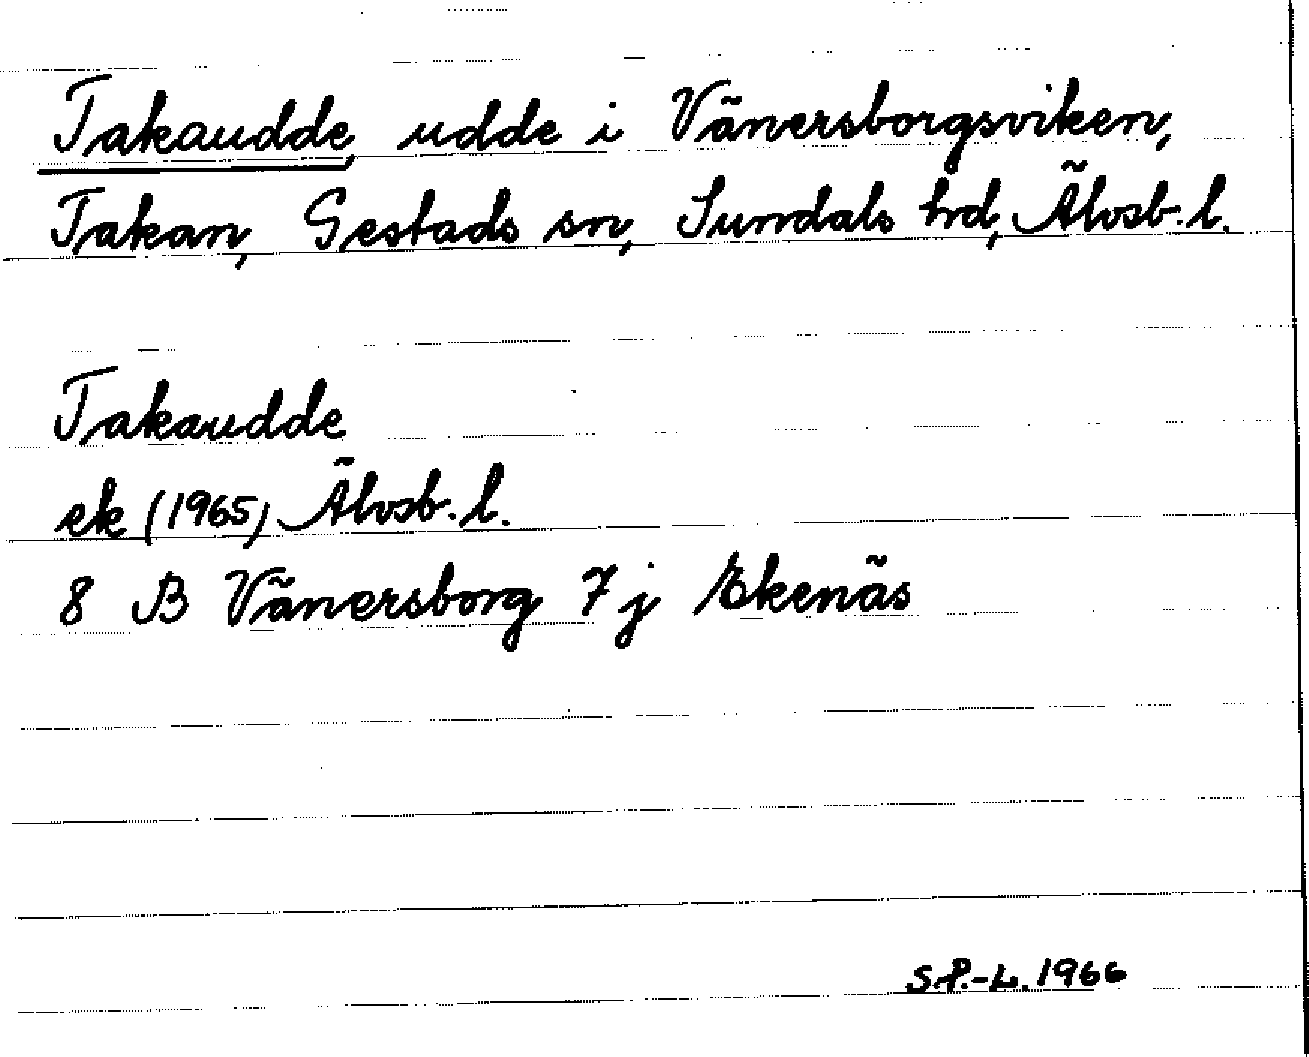 Takaudde, udde i Vänersborgsviken,
Takan, Gestads sn, Sundals hrd, Älvsb. l.
Takaudde
ek (1965) Älvsb. l.
8 B Vänersborg 7 j Ekenäs
S.P.-L. 1966